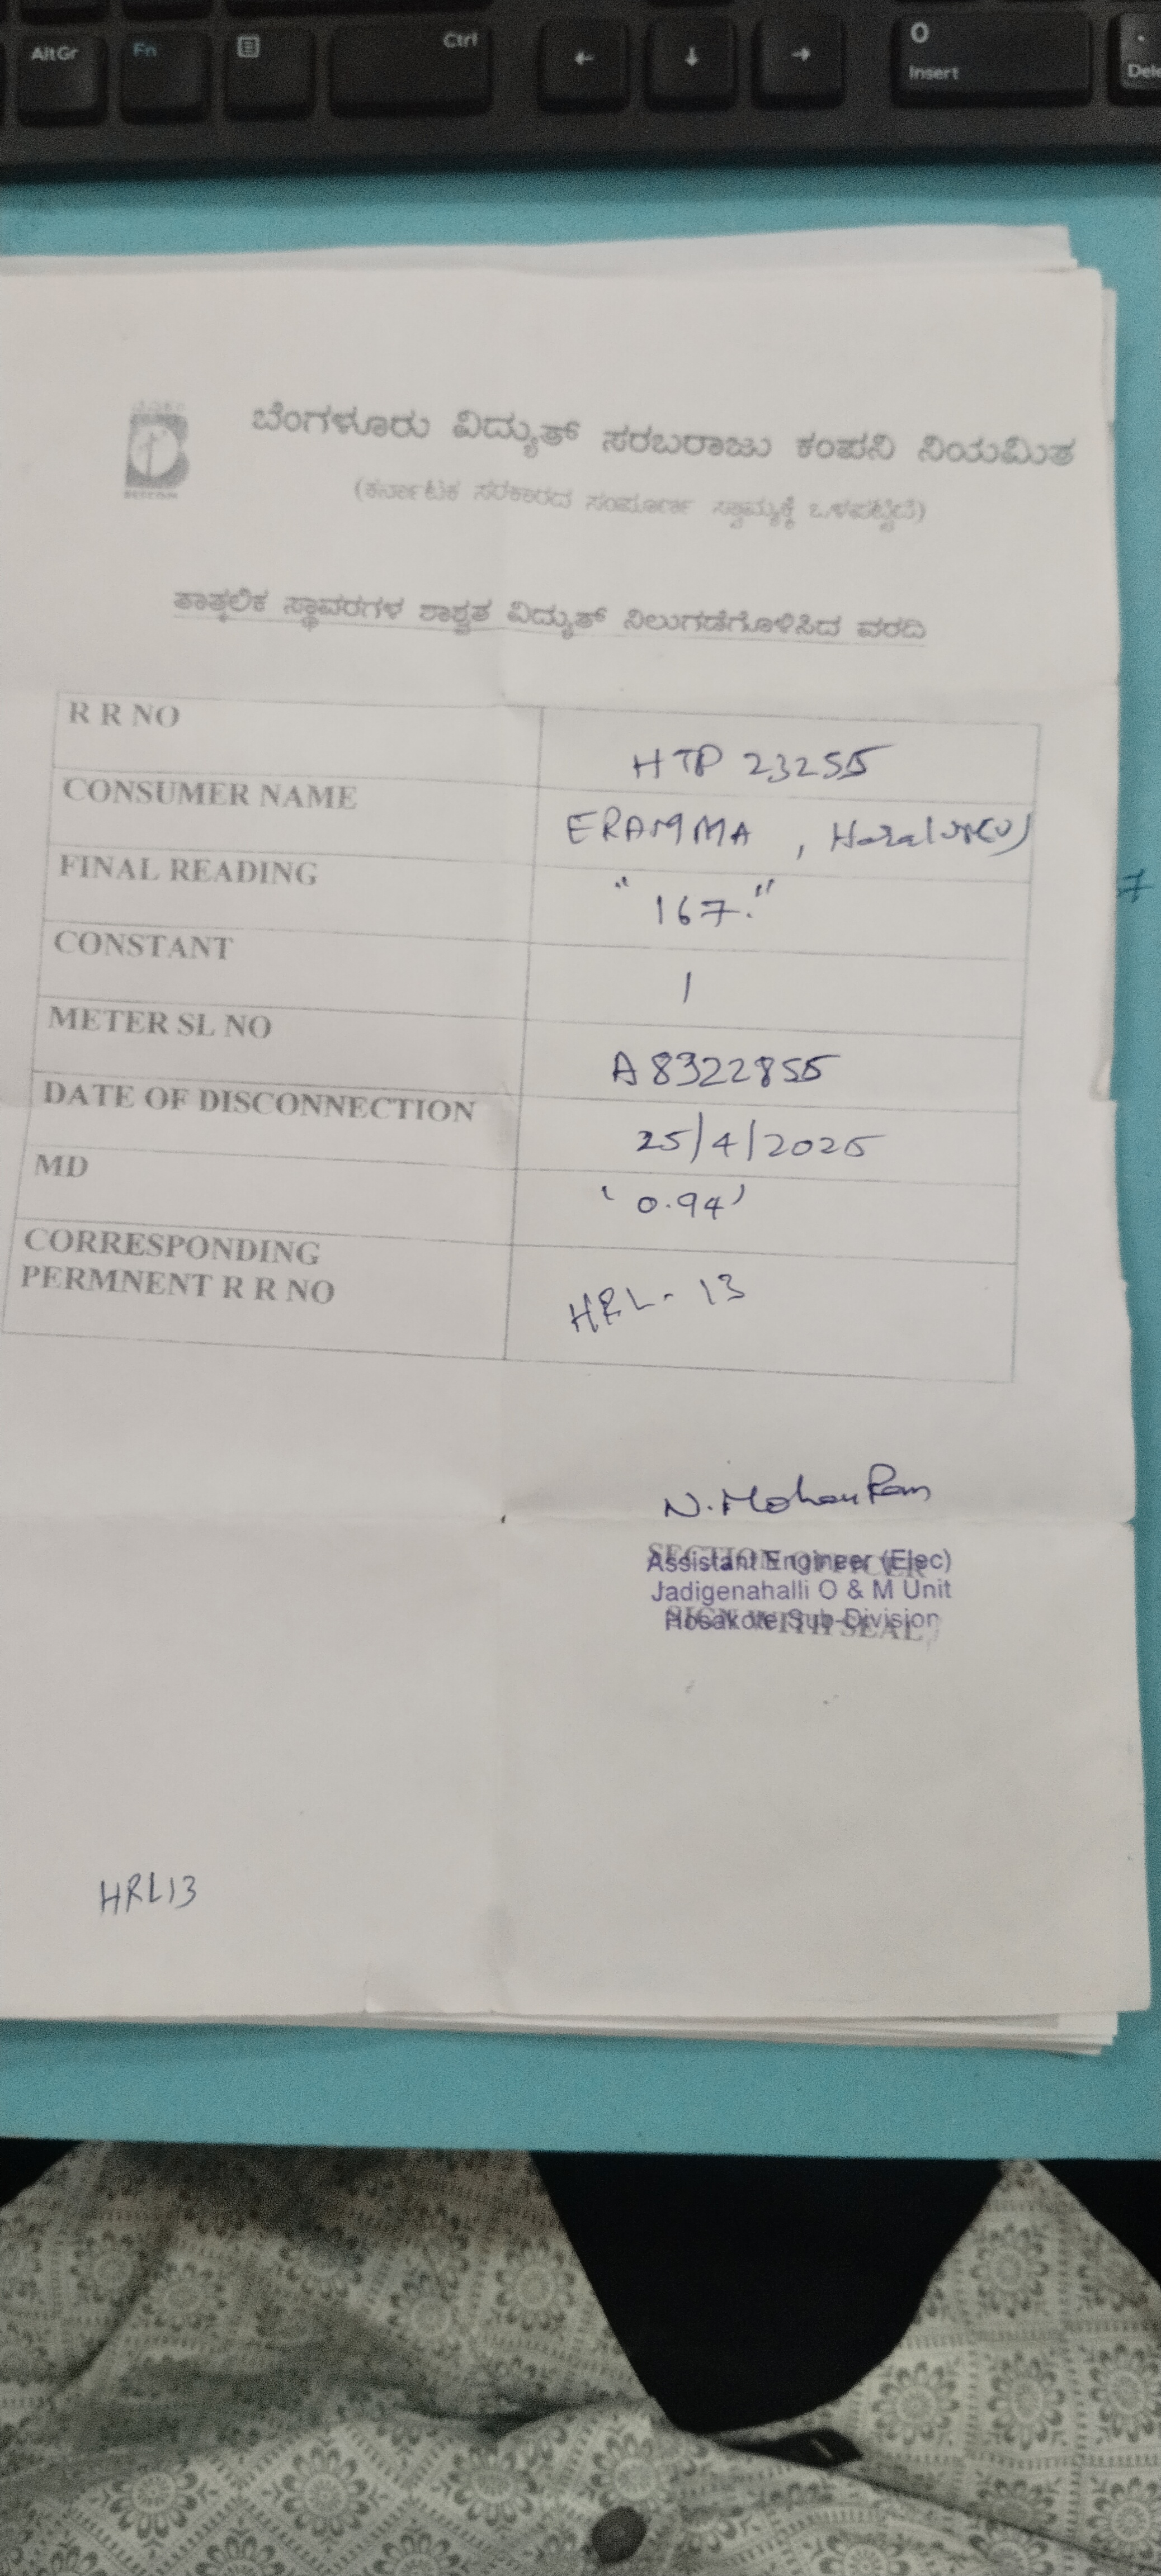 AltGr Fn Ctrl ← ↓ → 0 Insert
ಬೆಂಗಳೂರು ವಿದ್ಯುತ್ ಸರಬರಾಜು ಕಂಪನಿ ನಿಯಮಿತ
(ಕರ್ನಾಟಕ ಸರಕಾರದ ಸಂಪೂರ್ಣ ಸ್ವಾಮ್ಯಕ್ಕೆ ಒಳಪಟ್ಟಿದೆ)
ತಾತ್ಕಲಿಕ ಸ್ಥಾವರಗಳ ಶಾಶ್ವತ ವಿದ್ಯುತ್ ನಿಲುಗಡೆಗೊಳಿಸಿದ ವರದಿ
R R NO HTP 23255
CONSUMER NAME ERAMMA , Haralur(V)
FINAL READING "167."
CONSTANT 1
METER SL NO A8322855
DATE OF DISCONNECTION 25/4/2025
MD '0.94'
CORRESPONDING
PERMNENT R R NO HRL- 13
N. Mohan Ram
SECTION OFFICER
Assistant Engineer (Elec)
Jadigenahalli O & M Unit
Hosakote Sub-Division
SIGN WITH SEAL
HRL13